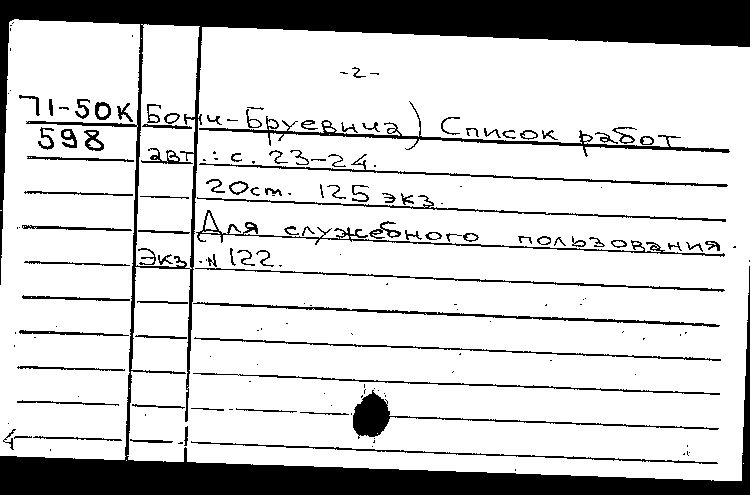 -2-
71-50К Бонч-Бруевича) Список работ
598
авт.: с. 23-24.
20см. 125 экз.
Для служебного пользования.
Экз. № 122.
4